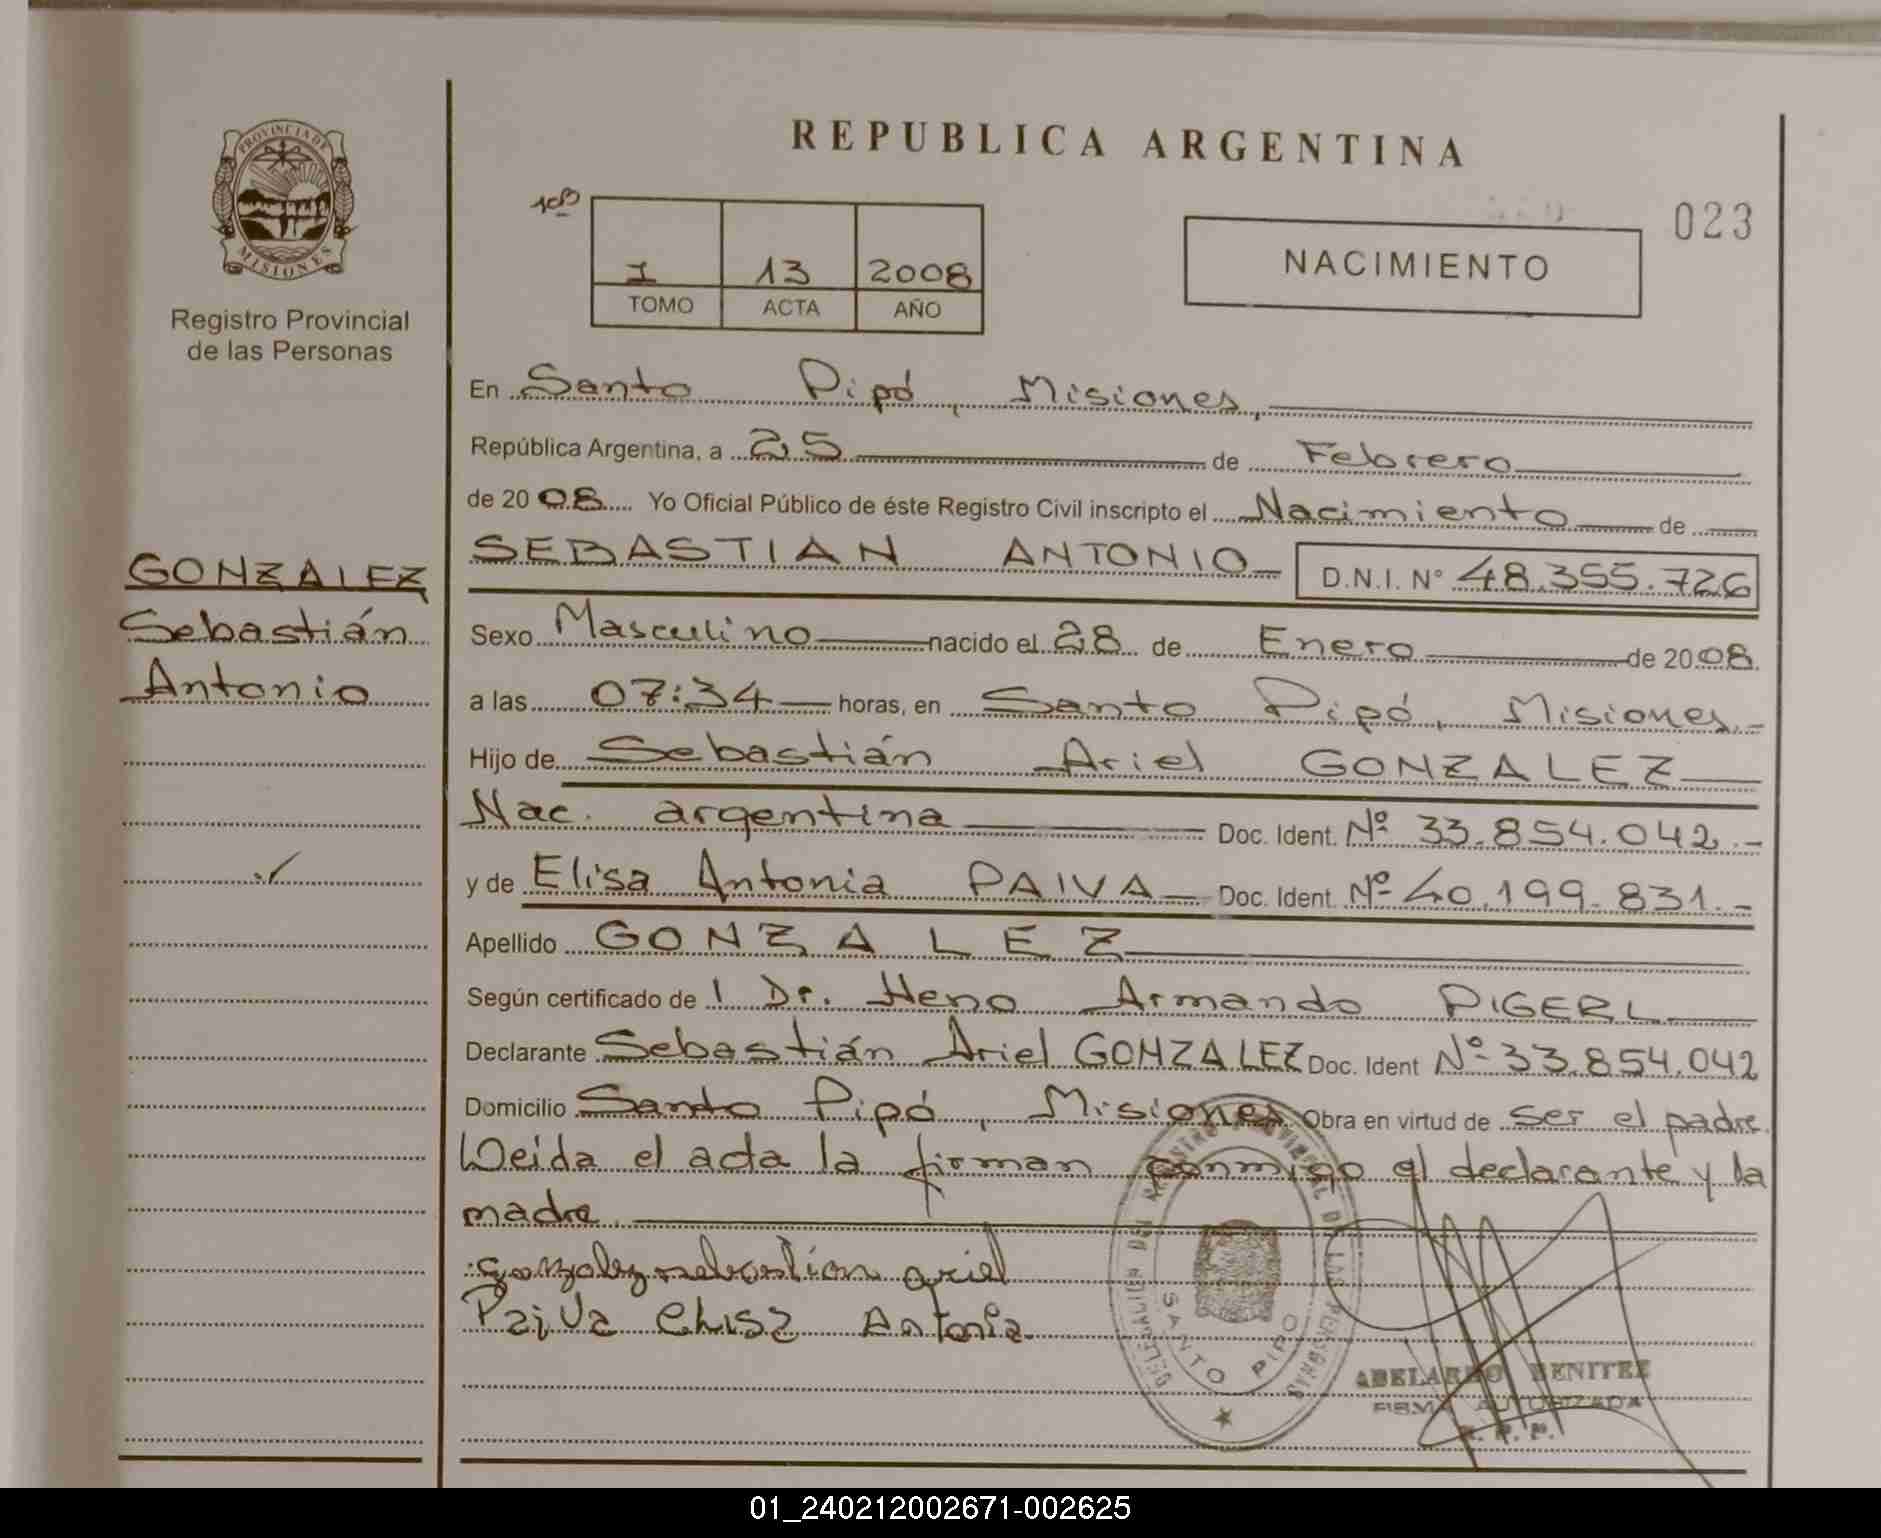 REPUBLICA ARGENTINA
PROVINCIA DE
MISIONES
Registro Provincial
de las Personas
1 13 2008
TOMO ACTA AÑO
NACIMIENTO
023
En Santo Pipó, Misiones,
República Argentina, a 25 de Febrero
de 20 08 Yo Oficial Público de éste Registro Civil inscripto el Nacimiento de
SEBASTIAN ANTONIO D.N.I. N° 48.355.726
GONZALEZ
Sebastián
Antonio
Sexo Masculino nacido el 28 de Enero de 20 08.
a las 07:34 horas, en Santo Pipó, Misiones.-
Hijo de Sebastián Ariel GONZALEZ
Nac. argentina Doc. Ident. Nº 33.854.042.-
y de Elisa Antonia PAIVA Doc. Ident. Nº 40.199.831.-
Apellido GONZALEZ
Según certificado de 1 Dr. Heno Armando PIGERL
Declarante Sebastián Ariel GONZALEZ Doc. Ident Nº 33.854.042
Domicilio Santo Pipó, Misiones Obra en virtud de ser el padre.
Leida el acta la firman conmigo el declarante y la
madre.
gonzalez sebastian ariel
Paiva Elisa Antonia.
DELEGACION DEL REGISTRO PROVINCIAL DE LAS PERSONAS
SANTO PIPO
ABELARDO BENITEZ
FIRMA AUTORIZADA
R. P. P.
01_240212002671-002625